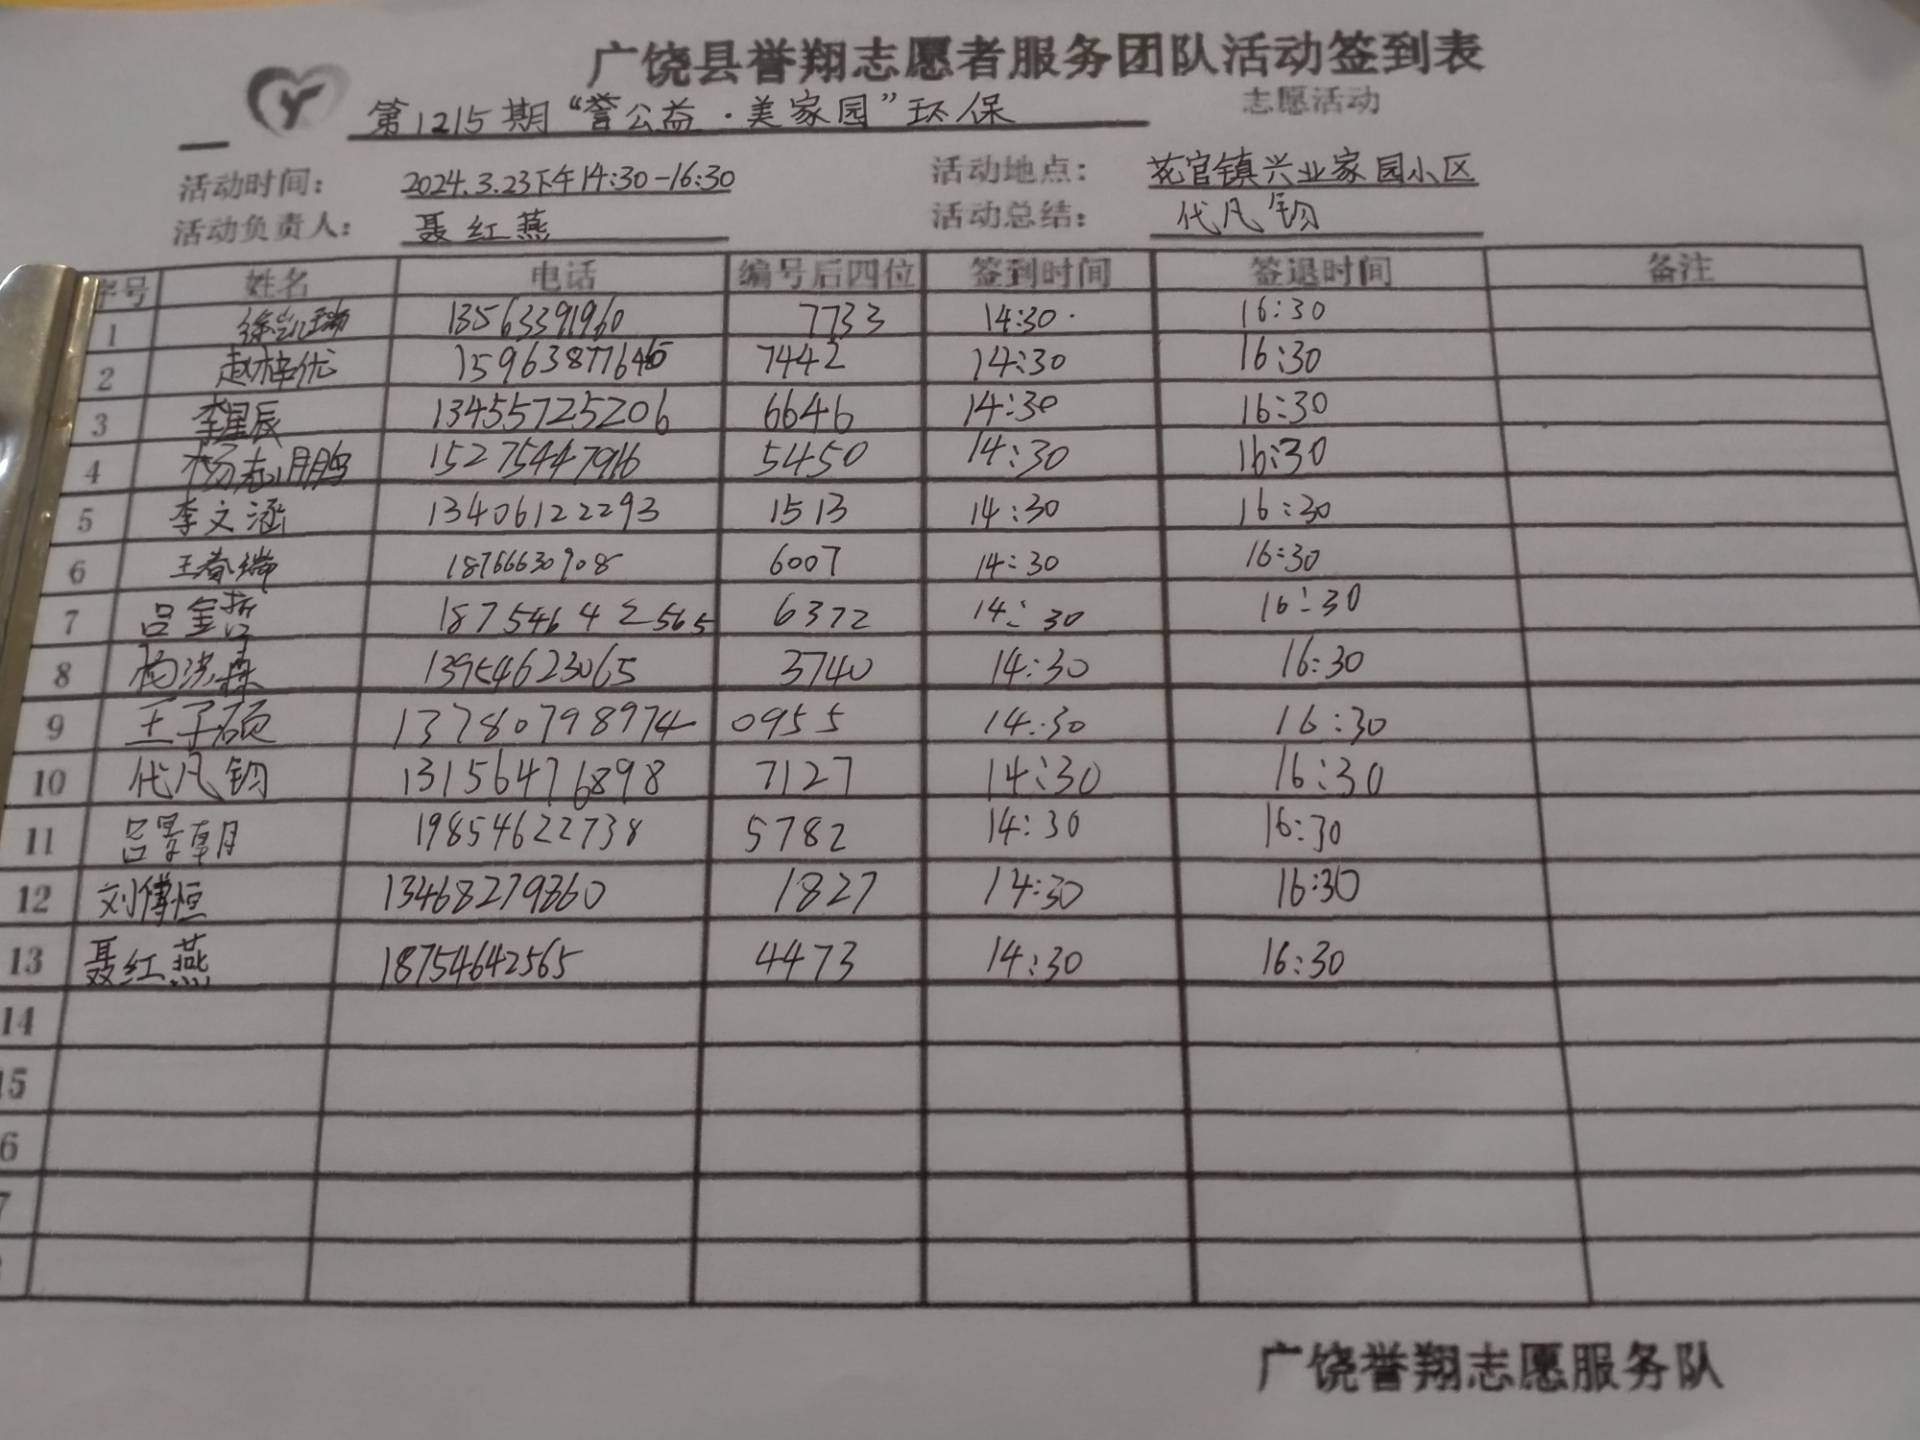 广饶县誉翔志愿者服务团队活动签到表
第1215期“誉公益·美家园”环保 志愿活动
活动时间: 2024.3.23下午14:30-16:30 活动地点: 花官镇兴业家园小区
活动负责人: 聂红燕 活动总结: 代凡钧
序号 姓名 电话 编号后四位 签到时间 签退时间 备注
1 徐凯瑞 13563391960 7733 14:30 16:30
2 赵梓优 7442 14:30 16:30
3 李星辰 13455725206 6646 14:30 16:30
4 杨志鹏 5450 14:30 16:30
5 李文涵 13406122293 1513 14:30 16:30
6 王春瑞 18766630908 6007 14:30 16:30
7 吕金哲 18754642565 6372 14:30 16:30
8 杨洪森 13954623065 3740 14:30 16:30
9 王子硕 13780798974 0955 14:30 16:30
10 代凡钧 13156476898 7127 14:30 16:30
11 吕景朝 19854622738 5782 14:30 16:30
12 刘傅恒 13468279360 1827 14:30 16:30
13 聂红燕 18754642565 4473 14:30 16:30
14
15
6
7
广饶誉翔志愿服务队